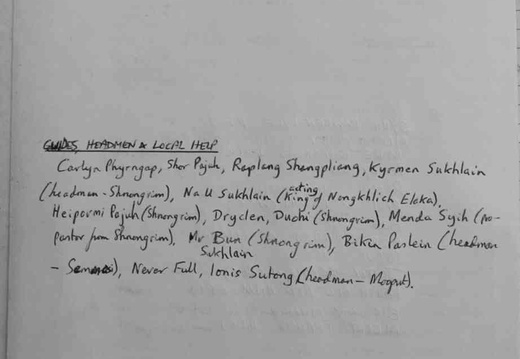 GUIDES, HEADMEN & LOCAL HELP
Carlyn Phyrngap, Shor Pajuh, Raplang Shangpliang, Kyrmen Sukhlain
(headman - Shnongrim), Na U Sukhlain (acting King of Nongkhlich Elaka),
Heipormi Pajuh (Shnongrim), Dryclen, Duchi (Shnongrim), Menda Syih (
pastor from Shnongrim), Mr Bun Sukhlain (Shnongrim), Bika Paslein (headman
- ), Never Full, Ionis Sutong (headman -